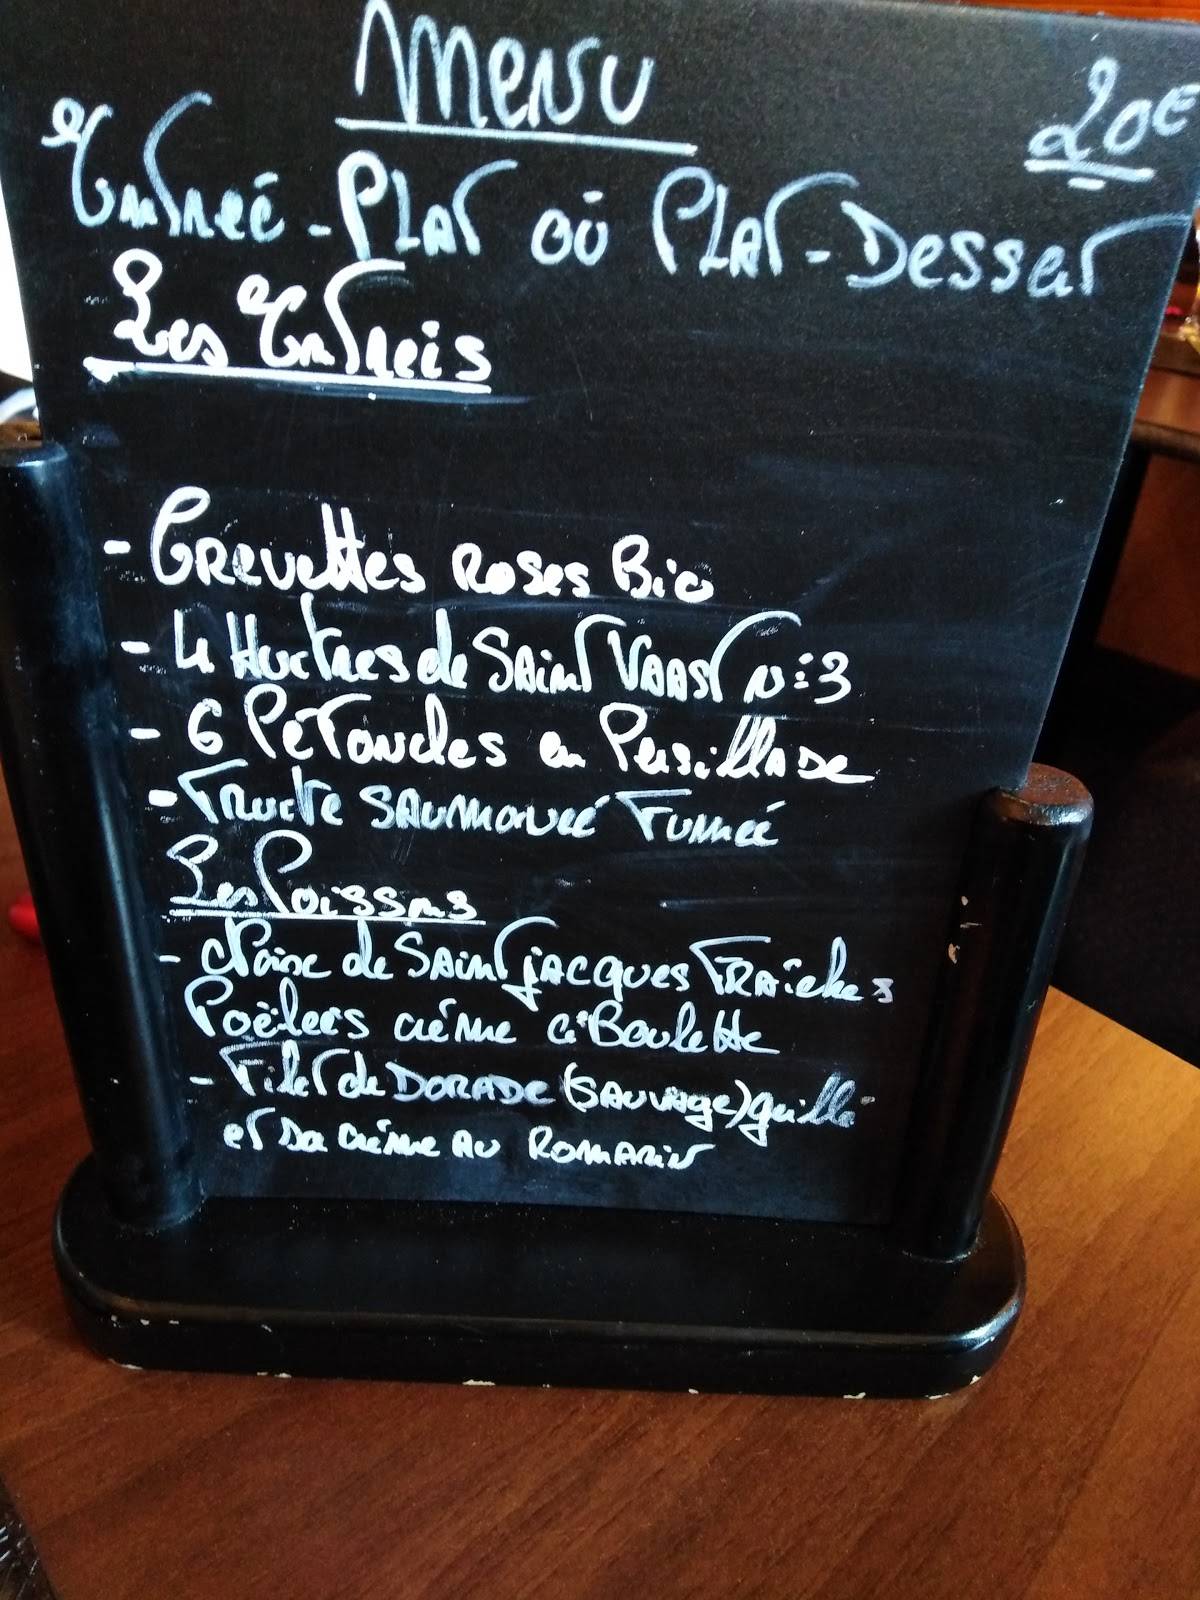 Menu
20€
Entrée - Plat où Plat - Dessert
Les Entreés
- Crevettes Roses Bio
- 4 Huitres de Saint Vaast n°3
- 6 Pétoncles en Persillade
- Truite Saumonée Fumée
Les Poissons
- Noix de Saint Jacques Fraîches
Poëlées crème ciboulette
- Filet de Dorade (Sauvage) grillé
et sa crème au Romarin